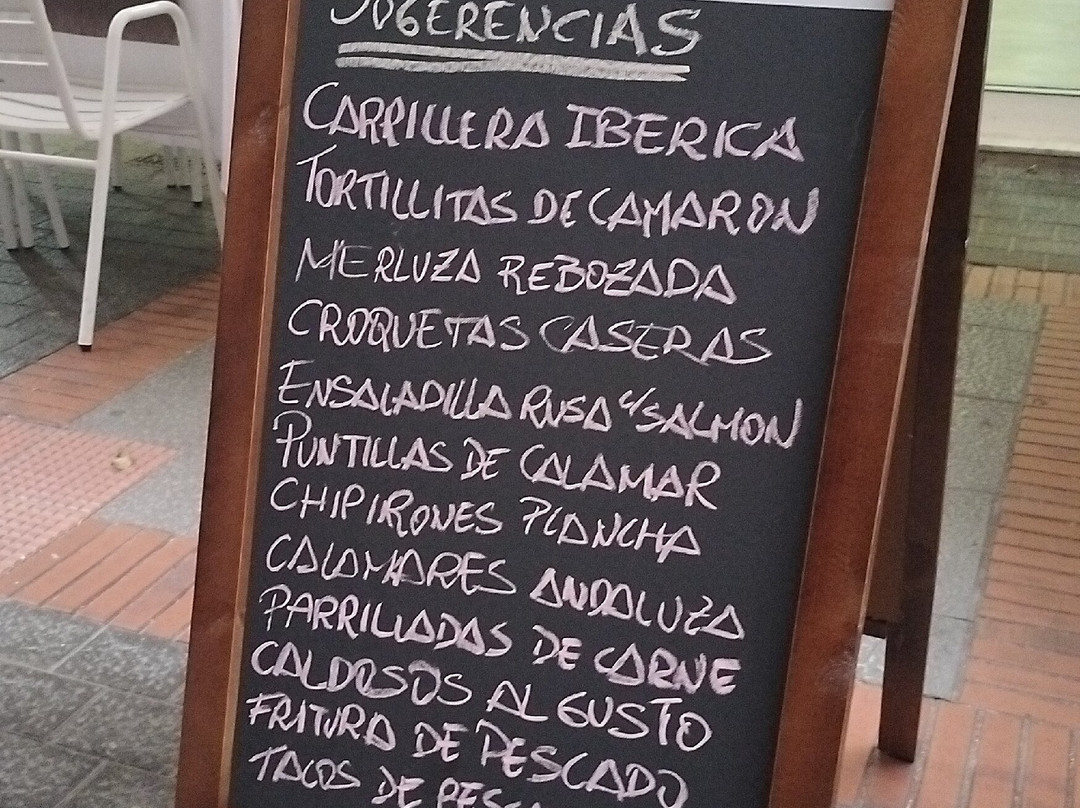 SUGERENCIAS
CARRILLERA IBERICA
TORTILLITAS DE CAMARON
MERLUZA REBOZADA
CROQUETAS CASERAS
ENSALADILLA RUSA C/SALMON
PUNTILLAS DE CALAMAR
CHIPIRONES PLANCHA
CALAMARES ANDALUZA
PARRILLADAS DE CARNE
CALDOSOS AL GUSTO
FRITURA DE PESCADO
TACOS DE